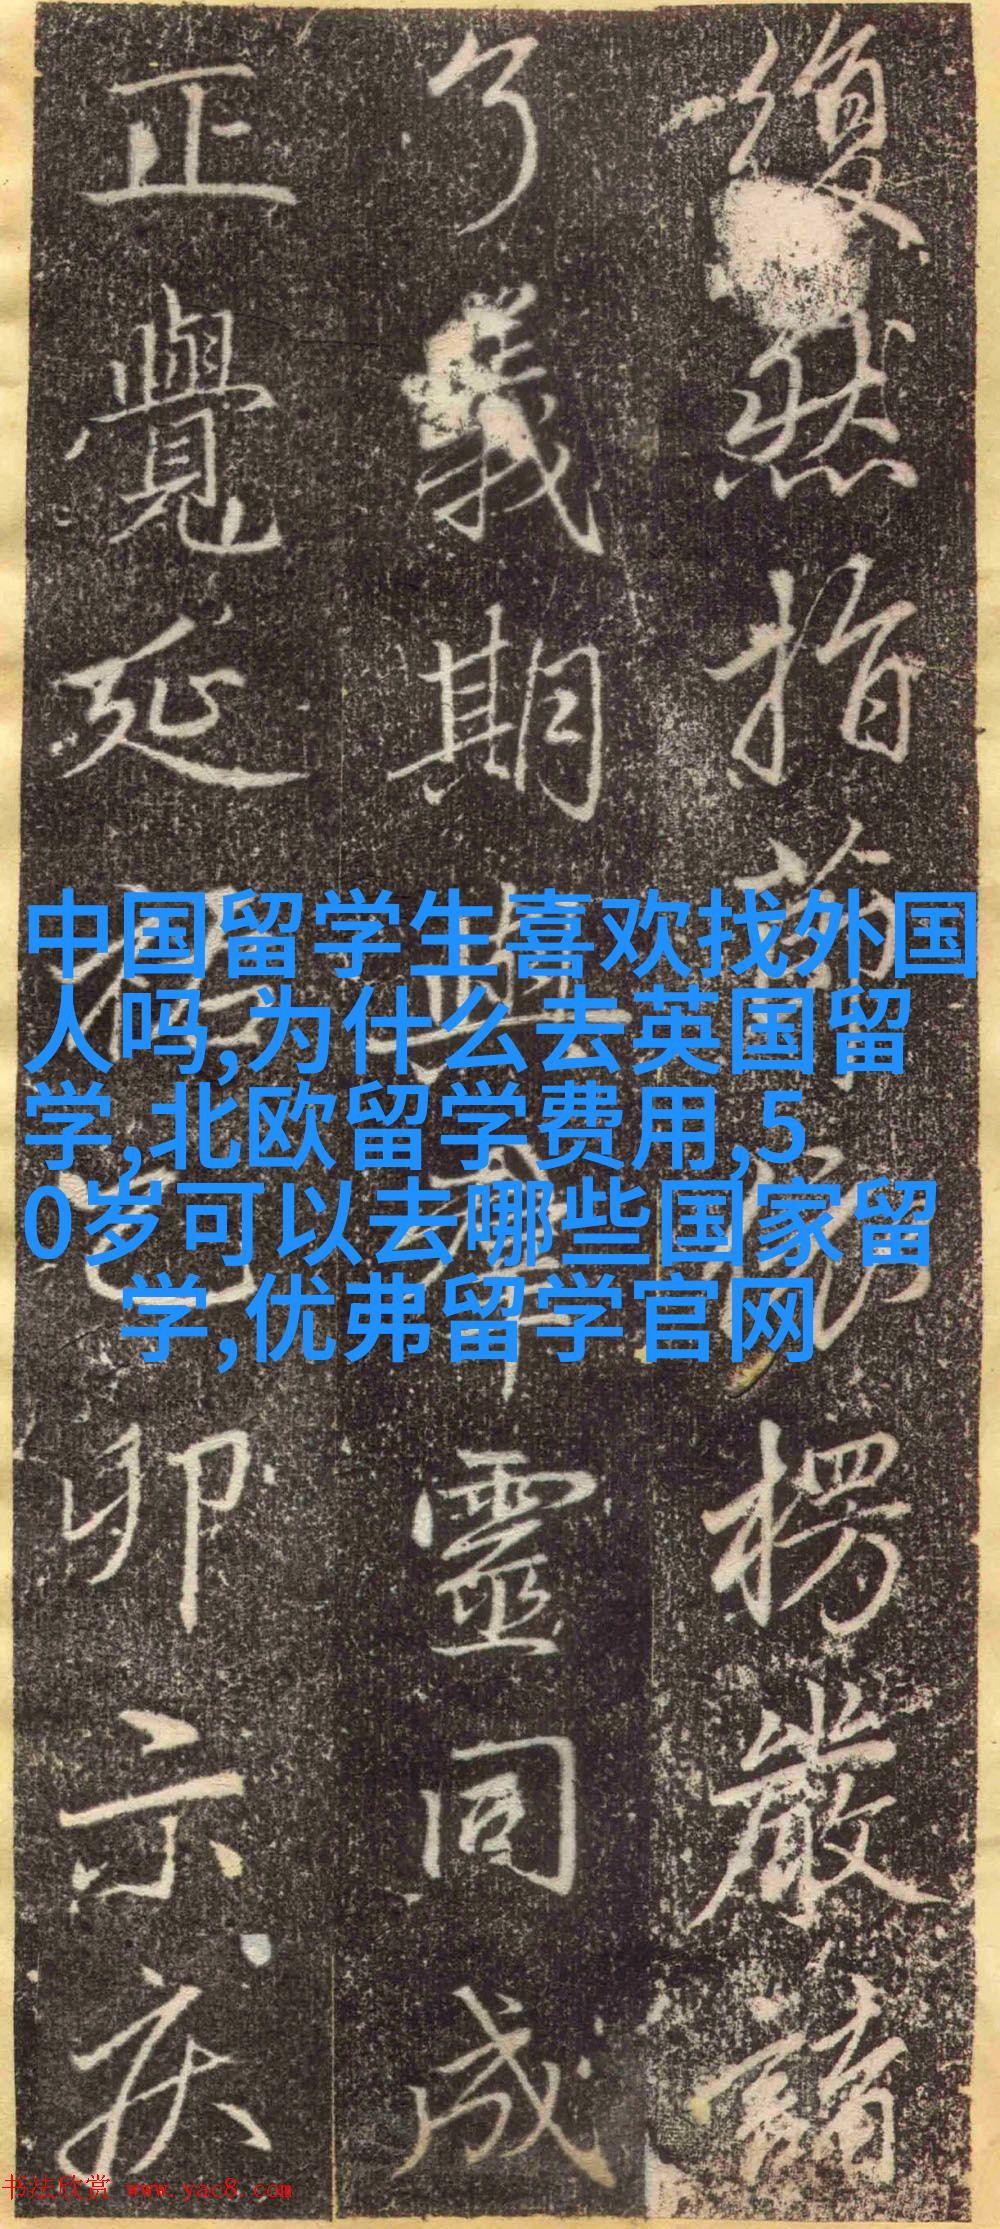 復然指楞嚴
了義期與靈同成
正覺延卯示
中国留学生喜欢找外国
人吗,为什么去英国留
学,北欧留学费用,5
0岁可以去哪些国家留
学,优弗留学官网
书法欣赏 www.yac8.com